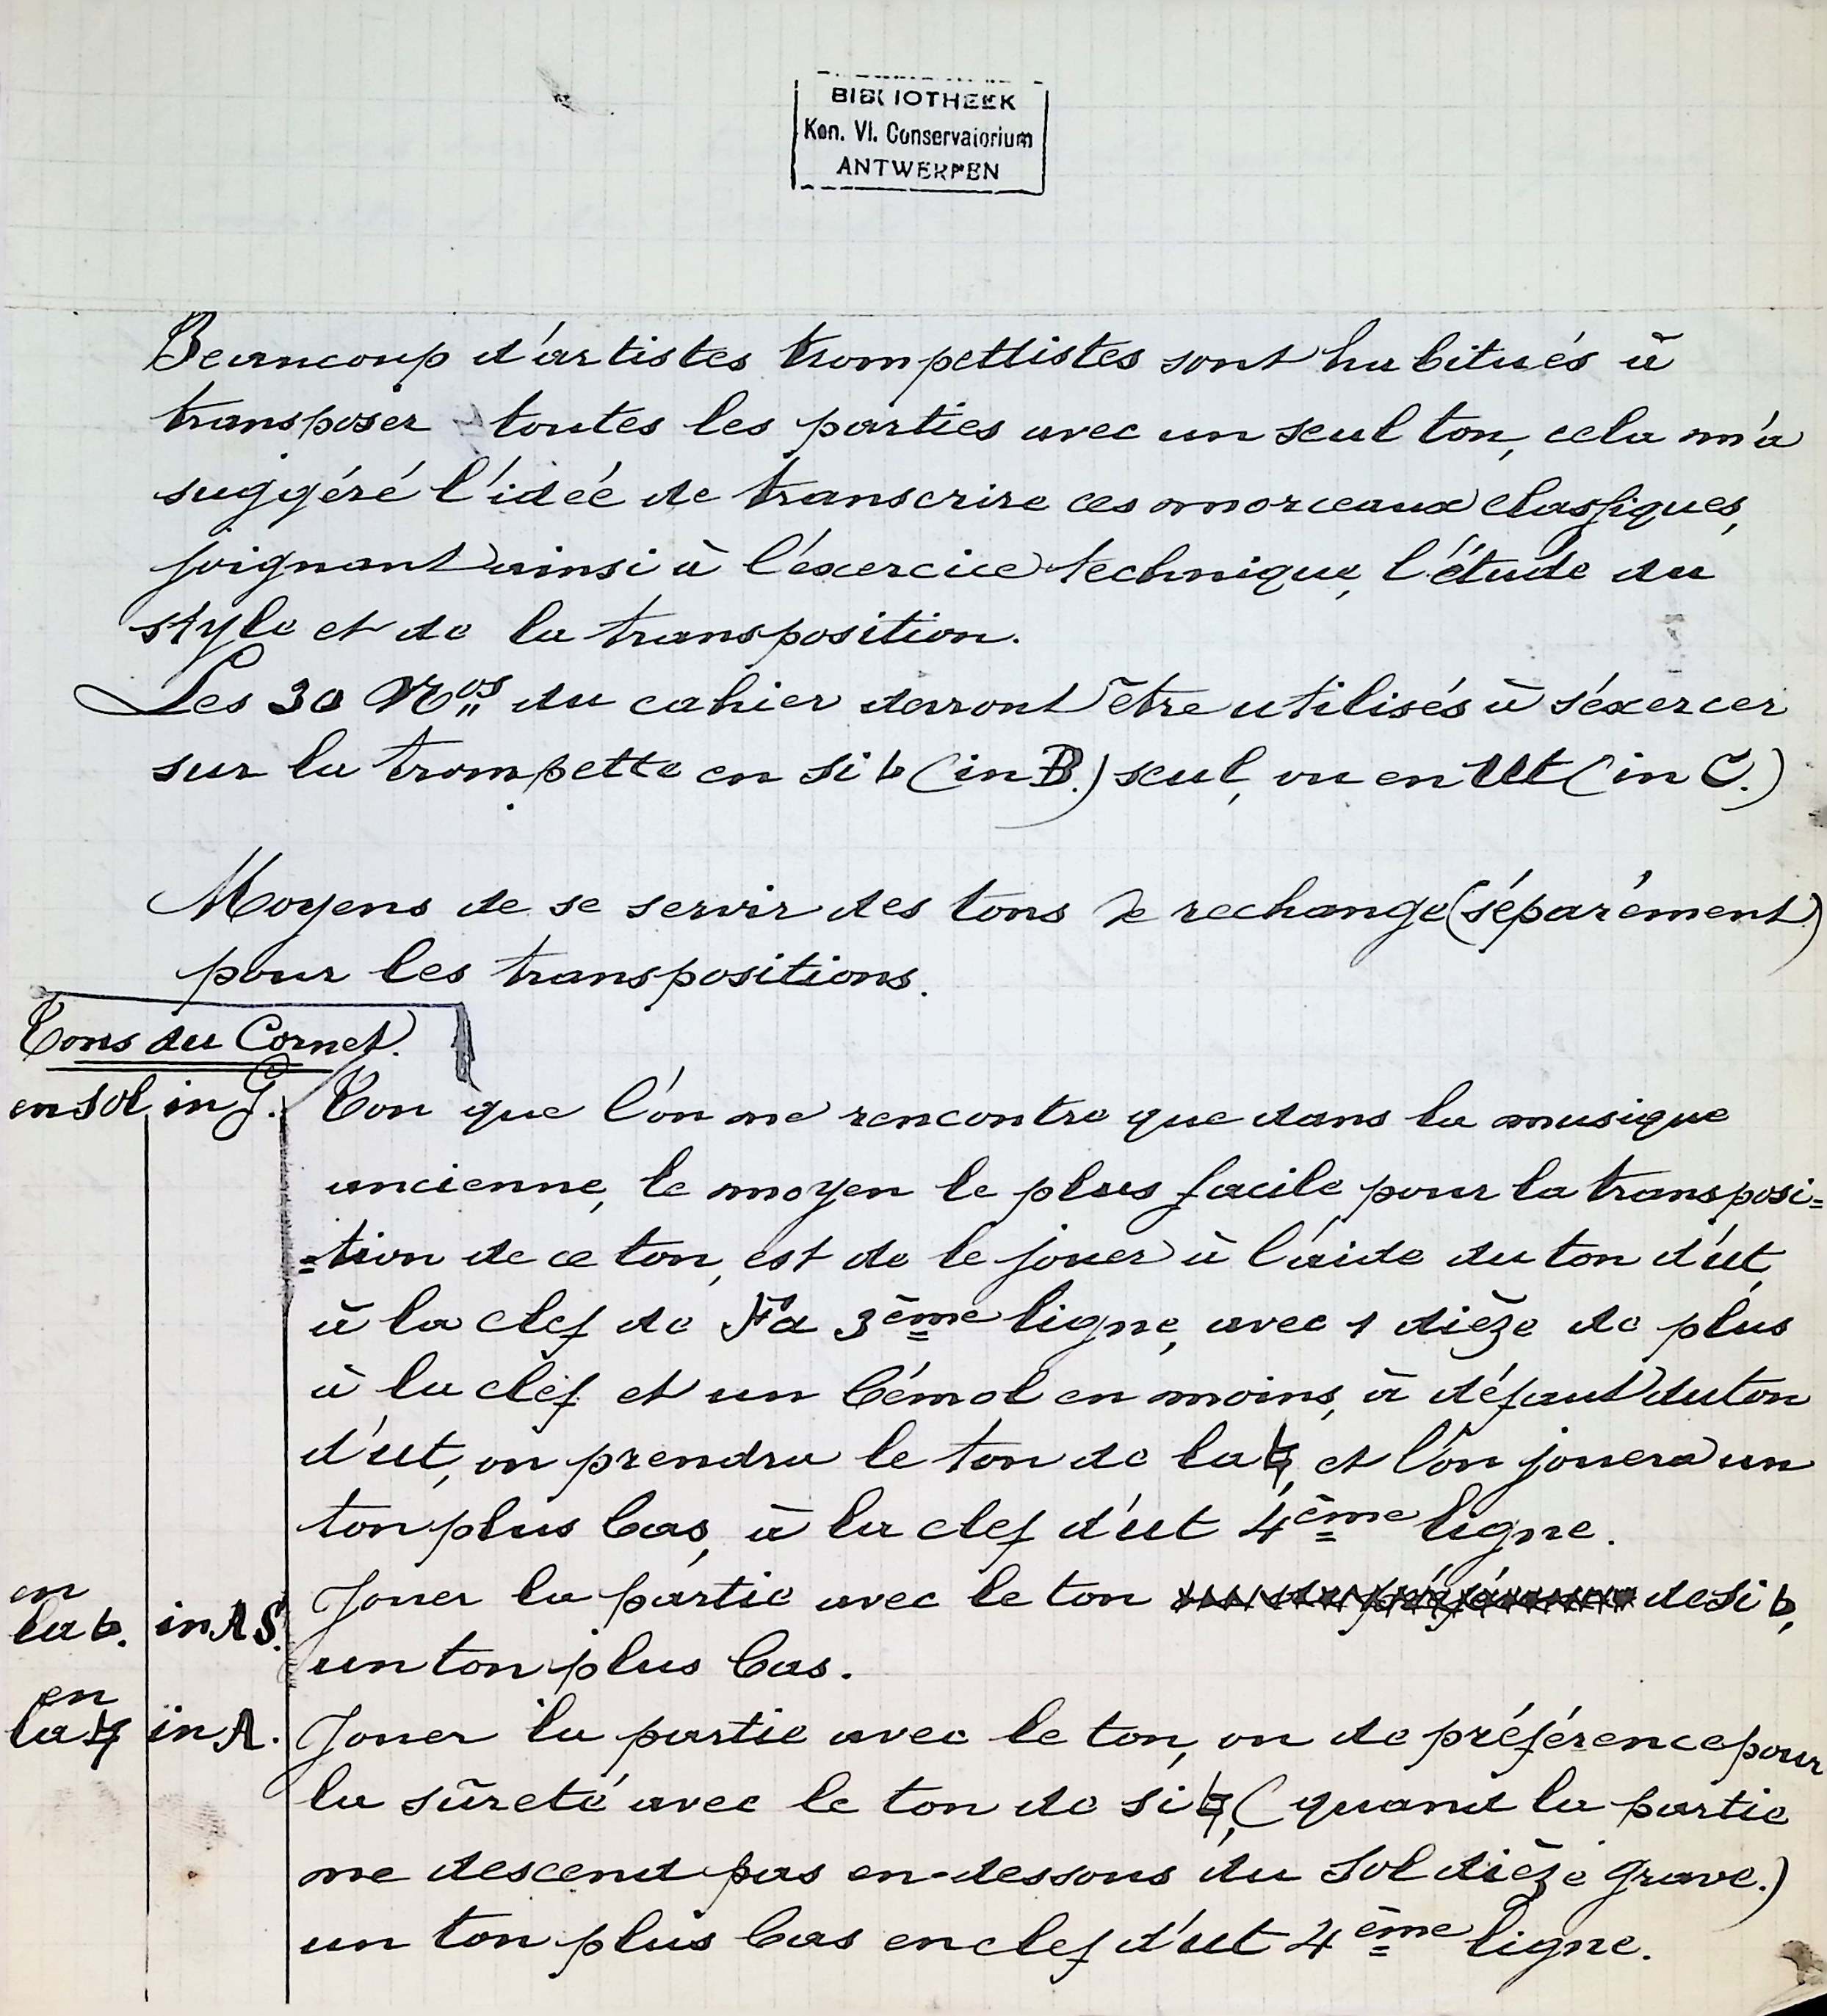 BIBLIOTHEEK
Kon. Vl. Conservatorium
ANTWERPEN
Beaucoup d'artistes trompettistes sont habitués à
transposer toutes les parties avec un seul ton, cela m'a
suggéré l'idée de transcrire ces morceaux classiques,
joignant ainsi à l'éxercice technique, l'étude du
style et de la transposition.
Les 30 Nros du cahier devront être utilisés à s'éxercer
sur la trompette en si♭ (in B.) seul, ou en Ut (in C.)
Moyens de se servir des tons de rechange (séparément)
pour les transpositions.
Tons du Cornet.
en sol in G. Ton que l'on ne rencontre que dans la musique
ancienne, le moyen le plus facile pour la transposi=
=tion de ce ton, est de le jouer à l'aide du ton d'ut,
à la clef de Fa 3ème ligne, avec 1 dièze de plus
à la clef et un bémol en moins, à défaut du ton
d'ut, on prendra le ton de la♮, et l'on jouera un
ton plus bas, à la clef d'ut 4ème ligne.
en la♭. in AS. Jouer la partie avec le ton de si♭,
un ton plus bas.
en la♮ in A. Jouer la partie avec le ton, ou de préférence pour
la sûreté avec le ton de si♮, (quand la partie
ne descend pas en-dessous du sol dièze grave.)
un ton plus bas en clef d'ut 4ème ligne.